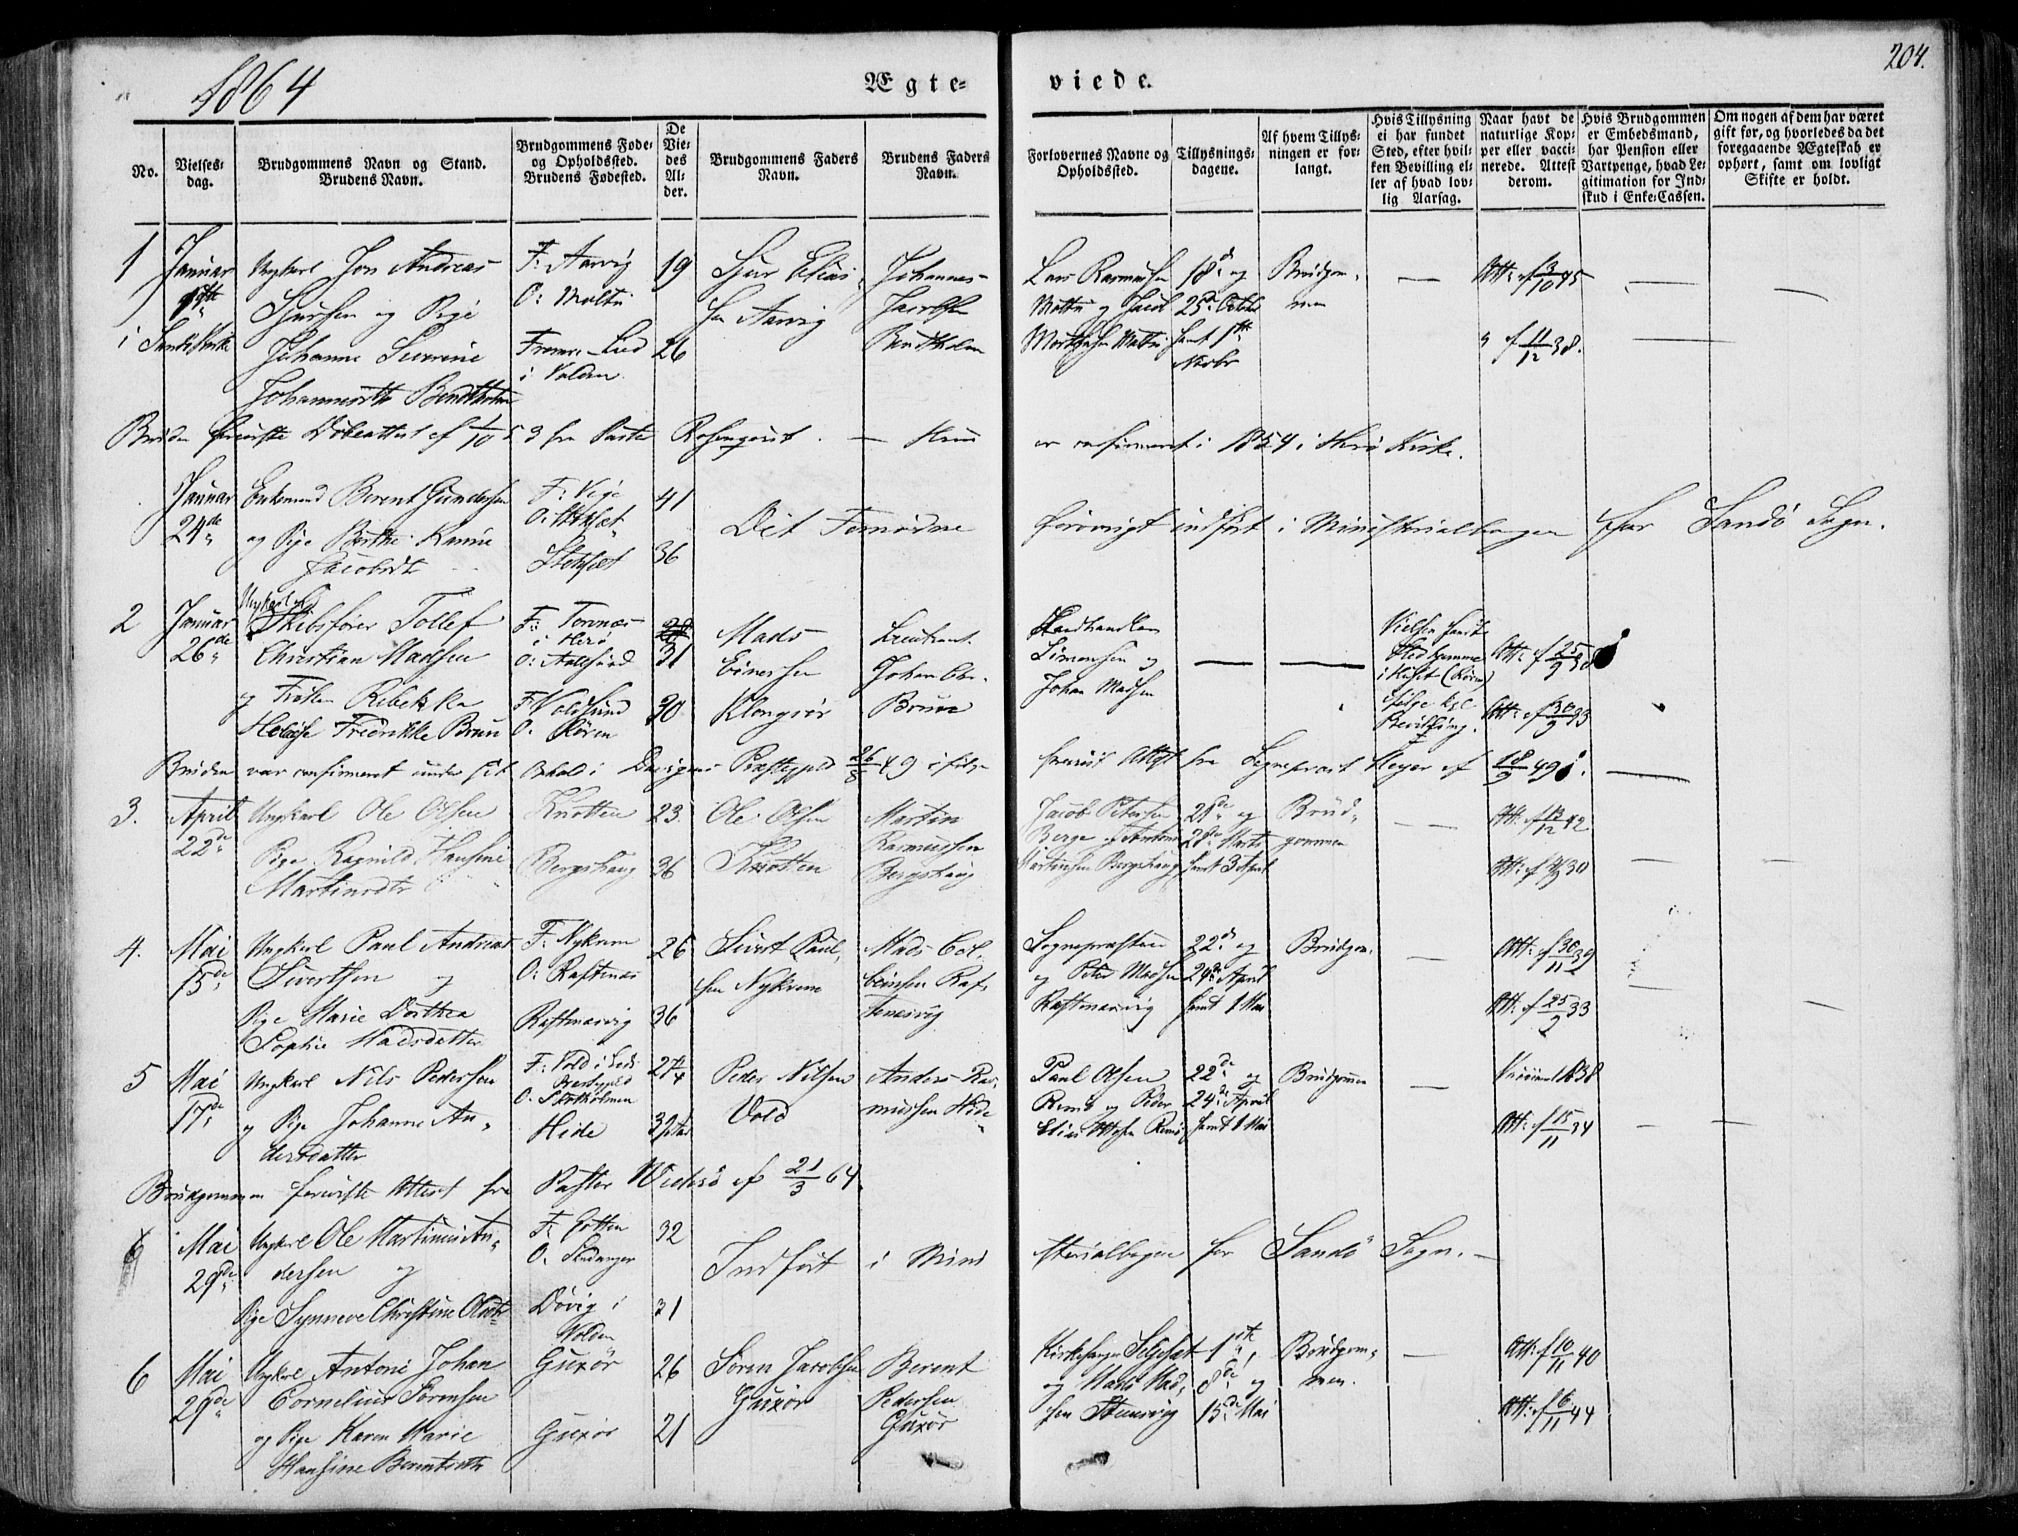 1864
Ægte=
viede.
204.
No.
Vielses=
dag.
Brudgommens Navn og Stand.
Brudens Navn.
Brudgommens Føde=
og Opholdssted.
Brudens Fødested.
De
Vie=
des
Al=
der.
Brudgommens Faders
Navn.
Brudens Faders
Navn.
Forlovernes Navne og
Opholdssted.
Tillysnings=
dagene.
Af hvem Tillys=
ningen er for=
langt.
Hvis Tillysning
ei har fundet
Sted, efter hvil=
ken Bevilling el=
ler af hvad lov=
lig Aarsag.
Naar havt de
naturlige Kop=
per eller vacci=
nerede. Attest
derom.
Hvis Brudgommen
er Embedsmand,
har Pension eller
Vartpenge, hvad Le=
gitimation for Ind=
skud i Enke=Cassen.
Om nogen af dem har været
gift før, og hvorledes da det
foregaaende Ægteskab er
ophørt, samt om lovligt
Skifte er holdt.
1
Januar
1ste
i Sandø Kirke
Ungkarl Jon Andreas
Sjursen og Pige
Johanne Severine
Johannesdtr
F: Aarvig
O: Moltu
i Volden
19
26
Sjur Elias
sen Aarvig
Johannes
Jacobsen
Lars Rasmussen
Moltu og Jacob
Moltu
18de og
25de October
samt 1ste
Novbr
Brudgom
men
Att: af 3/10 45
" af 11/12 38.
Bruden foreviste Døbeattest af 1/10 5 fra Pastor
Hun
er confirmeret i 1854 i Herø Kirke.
Januar
24de
Enkemand Berent Gundersen
og Pige Berthe Karine
Jacobsdtr
41
36
Det Fornødne
forøvrigt indført i Ministerialbogen for Sandø Sogn.
2
Januar
26de
Ungkarl og
Skibsfører Tollef
Christian Madsen
og Frøken Rebekka
Heloise Fredrikke Bruun
F: Tornæs
i Herø
O: Aalesund
F: Voldsund
O: Røren
31
30
Mads
Einersen
Klongsør
Lieutenant
Johan Chr.
Bruun
Landhandler
Simonsen og
Johan Madsen
Sted hjemme
i Huset (Røren)
ifølge kgl.
Bevilling.
Att: af 25/9 38
Att: af 30/9 33
Bruden var confirmeret under sit Ophold i Præstegjeld 26/8 49 ifølge
forevist Attest fra Sognepræst Meyer af 18/9 49.
3.
April
22de
Ungkarl Ole Olsen
Pige Ragnild Hansine
Martinsdtr
Knotten
Bergshaug
23
36
Ole Olsen
Knotten
Martin
Rasmussen
Bergshaug
Jacob Petersen
Berge og Antoni
Martinsen Bergshaug
21de og
28de Marts
samt 3 April
Brud
gommen
Att: af 12/12 42
4.
Mai
15de
Ungkarl Paul Andreas
Sivertsen og
Pige Marie Dorthea
Sophie Madsdatter
F: Nykrem
O: Raftenæs
Raftenæsvig
26
36
Sivert Paul
sen Nykrem
Mads Col
beinsen Raf
tenæsvig
Sognepræsten
og Peter Madsen
Raftenæsvig
22de og
24de April
samt 1 Mai
Brudgom
Att: af 30/11 39
Att: af 25/9 33
5
Mai
17de
Ungkarl Nils Pedersen
og Pige Johanne An
dersdatter
F: Vold i Eids
Præstegjeld
O: Stokholmen
Hide
Peder Nilsen
Vold
Anders Ras
mussen Hide
Paul Olsen
Remø og Peder
Elias Olsen Remø
22de og
24de April
samt 1 Mai
Brudgommen
1838
Att: af 15/11 34
Brudgommen foreviste Attest fra Pastor af 21/3 64.
6
Mai
29de
Ungkarl Ole Martinus An
dersen og
Pige Synneve Christine Olsdtr
F: Botten
O: Skudanger
Døvig i
Volden
32
31
Indført i Mini
sterialbogen for Sandø Sogn.
6
Mai
29de
Ungkarl Antoni Johan
Cornelius Sørensen
og Pige Karen Marie
Hansine Berentsdtr
Gurør
Gurør
26
21
Søren Jacobsen
Gurør
Berent
Pedersen
Gurør
Kirkesanger
og Mads Mad
sen
1ste,
8de og
15de Mai
Brudgom
men.
Att: af 10/11 40
Att: af 6/11 44